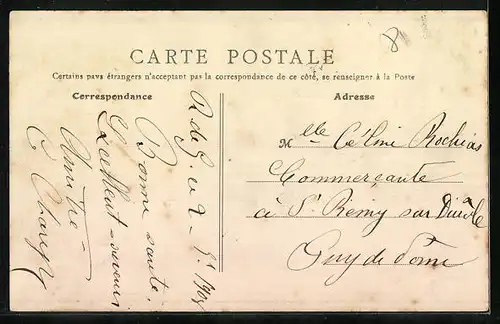 CARTE POSTALE
Certains pays étrangers n'acceptant pas la correspondance de ce côté, se renseigner à la Poste
Correspondance
Adresse
Bonne santé.
Excellent souvenir
Amitié
Mlle Céline Rochias
Commerçante
à St Remy sur Durole
Puy de Dome